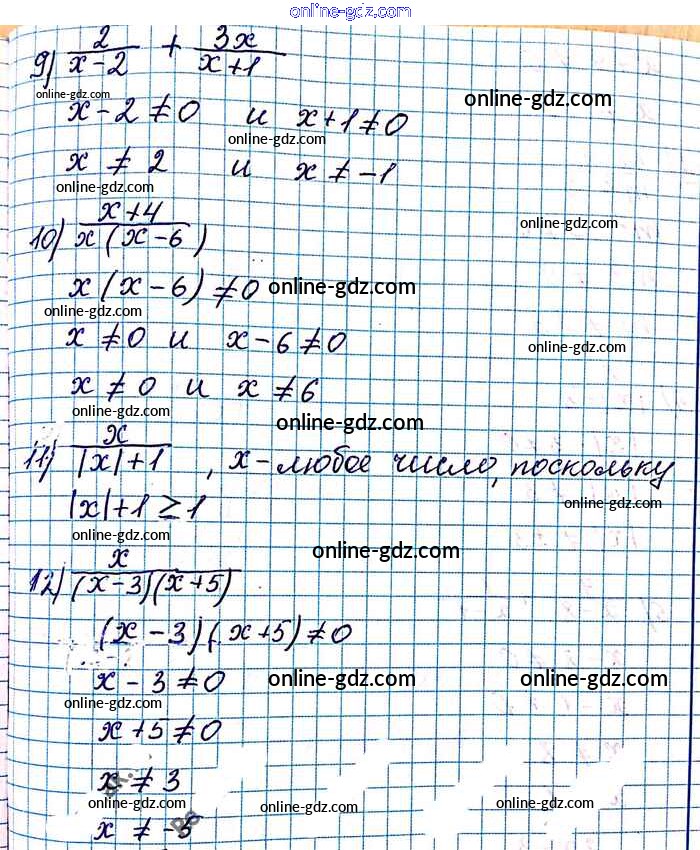 online-gdz.com
9) 2/(x-2) + 3x/(x+1)
online-gdz.com
x-2≠0 и x+1≠0
online-gdz.com
online-gdz.com
x ≠ 2 и x ≠ -1
online-gdz.com
10) (x+4)/(x(x-6))
online-gdz.com
x(x-6)≠0
online-gdz.com
online-gdz.com
x≠0 и x-6≠0
online-gdz.com
x≠0 и x≠6
online-gdz.com
online-gdz.com
11) x/(|x|+1), x-любое число, поскольку
online-gdz.com
|x|+1≥1
online-gdz.com
online-gdz.com
12) x/((x-3)(x+5))
(x-3)(x+5)≠0
x-3≠0
online-gdz.com
online-gdz.com
online-gdz.com
x+5≠0
x≠3
online-gdz.com
online-gdz.com
online-gdz.com
x≠-5